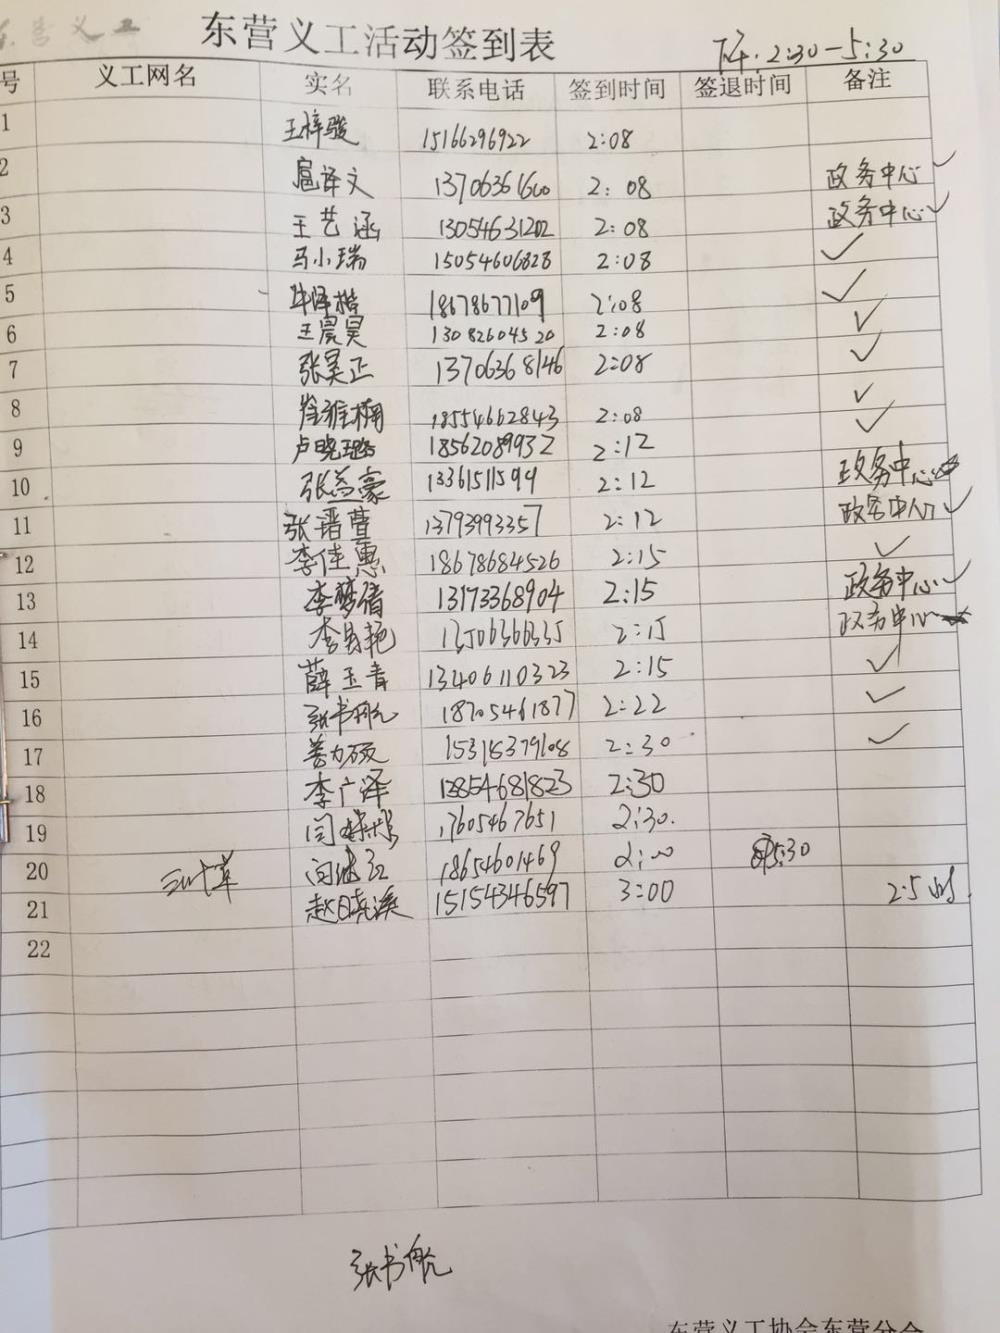 东营义工活动签到表
下午:2:30-5:30
号 义工网名 实名 联系电话 签到时间 签退时间 备注
1 王梓骏 15166296922 2:08
2 扈译文 13706361600 2:08 政务中心 ✓
3 王艺涵 13054631202 2:08 政务中心 ✓
4 马小瑞 15054606828 2:08 ✓
5 牛泽楷 18678677109 2:08 ✓
6 王晨昊 13082604520 2:08 ✓
7 张昊正 13706368146 2:08 ✓
8 18554662843 2:08 ✓
9 卢晓璐 18562089932 2:12 ✓
10 张益豪 13361511594 2:12 政务中心
11 张瑨萱 13793993357 2:12 政务中心 ✓
12 李佳惠 18678684526 2:15 ✓
13 李梦倩 13173368904 2:15 政务中心 ✓
14 2:15 政务中心
15 薛玉青 13406110323 2:15 ✓
16 张书 18705461877 2:22 ✓
17 15318379108 2:30 ✓
18 李广泽 2:30
19 闫 17605467651 2:30.
20 18654601469 2:00 5:30
21 赵晓溪 15154346597 3:00 2.5小时.
22
张书
东营义工协会东营分会